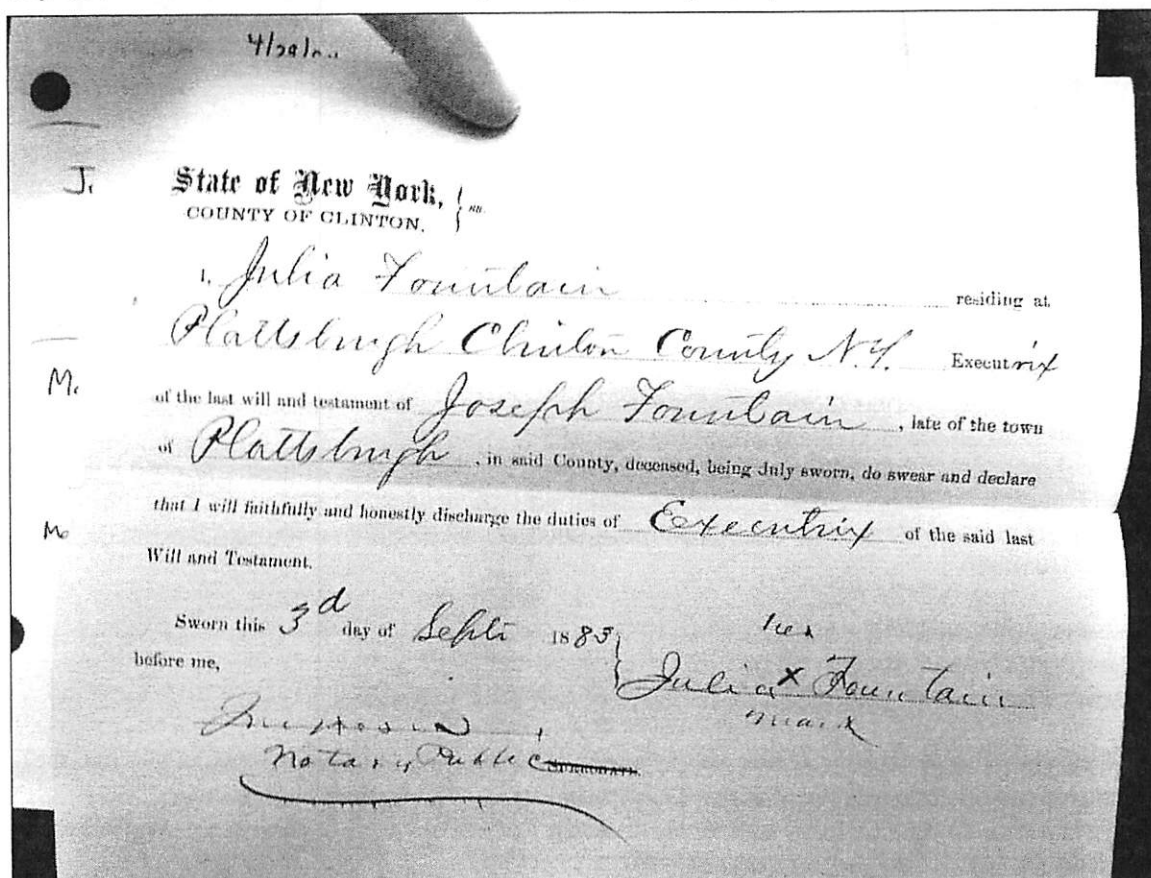 J.
State of New York, } ss.
COUNTY OF CLINTON.
I, Julia Fountain residing at
Plattsburgh Clinton County N.Y. Executrix
M.
of the last will and testament of Joseph Fountain, late of the town
of Plattsburgh, in said County, deceased, being duly sworn, do swear and declare
that I will faithfully and honestly discharge the duties of Executrix of the said last
Mo
Will and Testament.
Sworn this 3d day of Sept. 1883 } her
before me, Julia x Fountain
mark
Notary Public